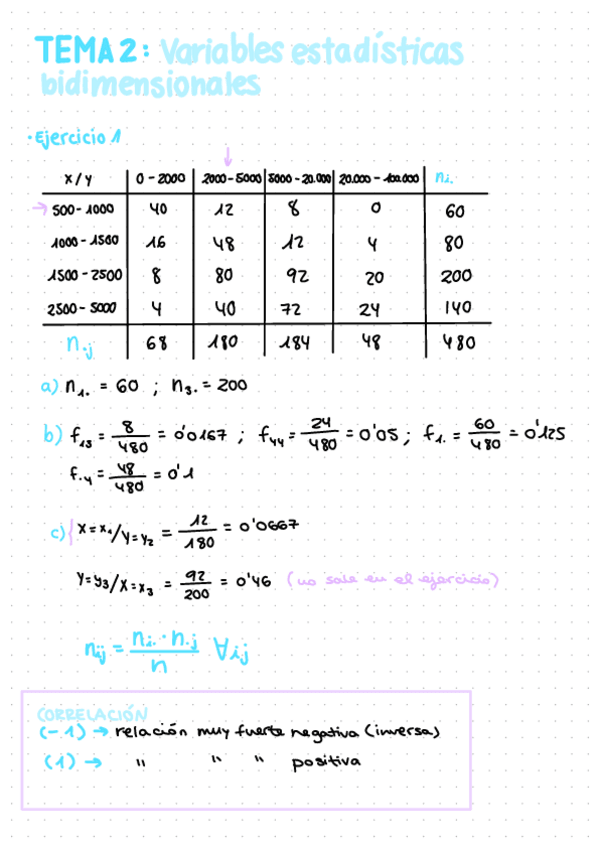 TEMA 2: Variables estadísticas
bidimensionales
• Ejercicio 1
X / Y 0 - 2000 2000 - 5000 5000 - 20.000 20.000 - 100.000 ni.
500 - 1000 40 12 8 0 60
1000 - 1500 16 48 12 4 80
1500 - 2500 8 80 92 20 200
2500 - 5000 4 40 72 24 140
n.j 68 180 184 48 480
a) n1. = 60 ; n3. = 200
b) f13 = 8/480 = 0'0167 ; f44 = 24/480 = 0'05 ; f1. = 60/480 = 0'125
f.4 = 48/480 = 0'1
c) X = x1 / Y = y2 = 12/180 = 0'0667
Y = y3 / X = x3 = 92/200 = 0'46 (no sale en el ejercicio)
nij = ni. · n.j / n ∀ i,j
CORRELACIÓN
(-1) → relación muy fuerte negativa (inversa)
(1) → " " " positiva